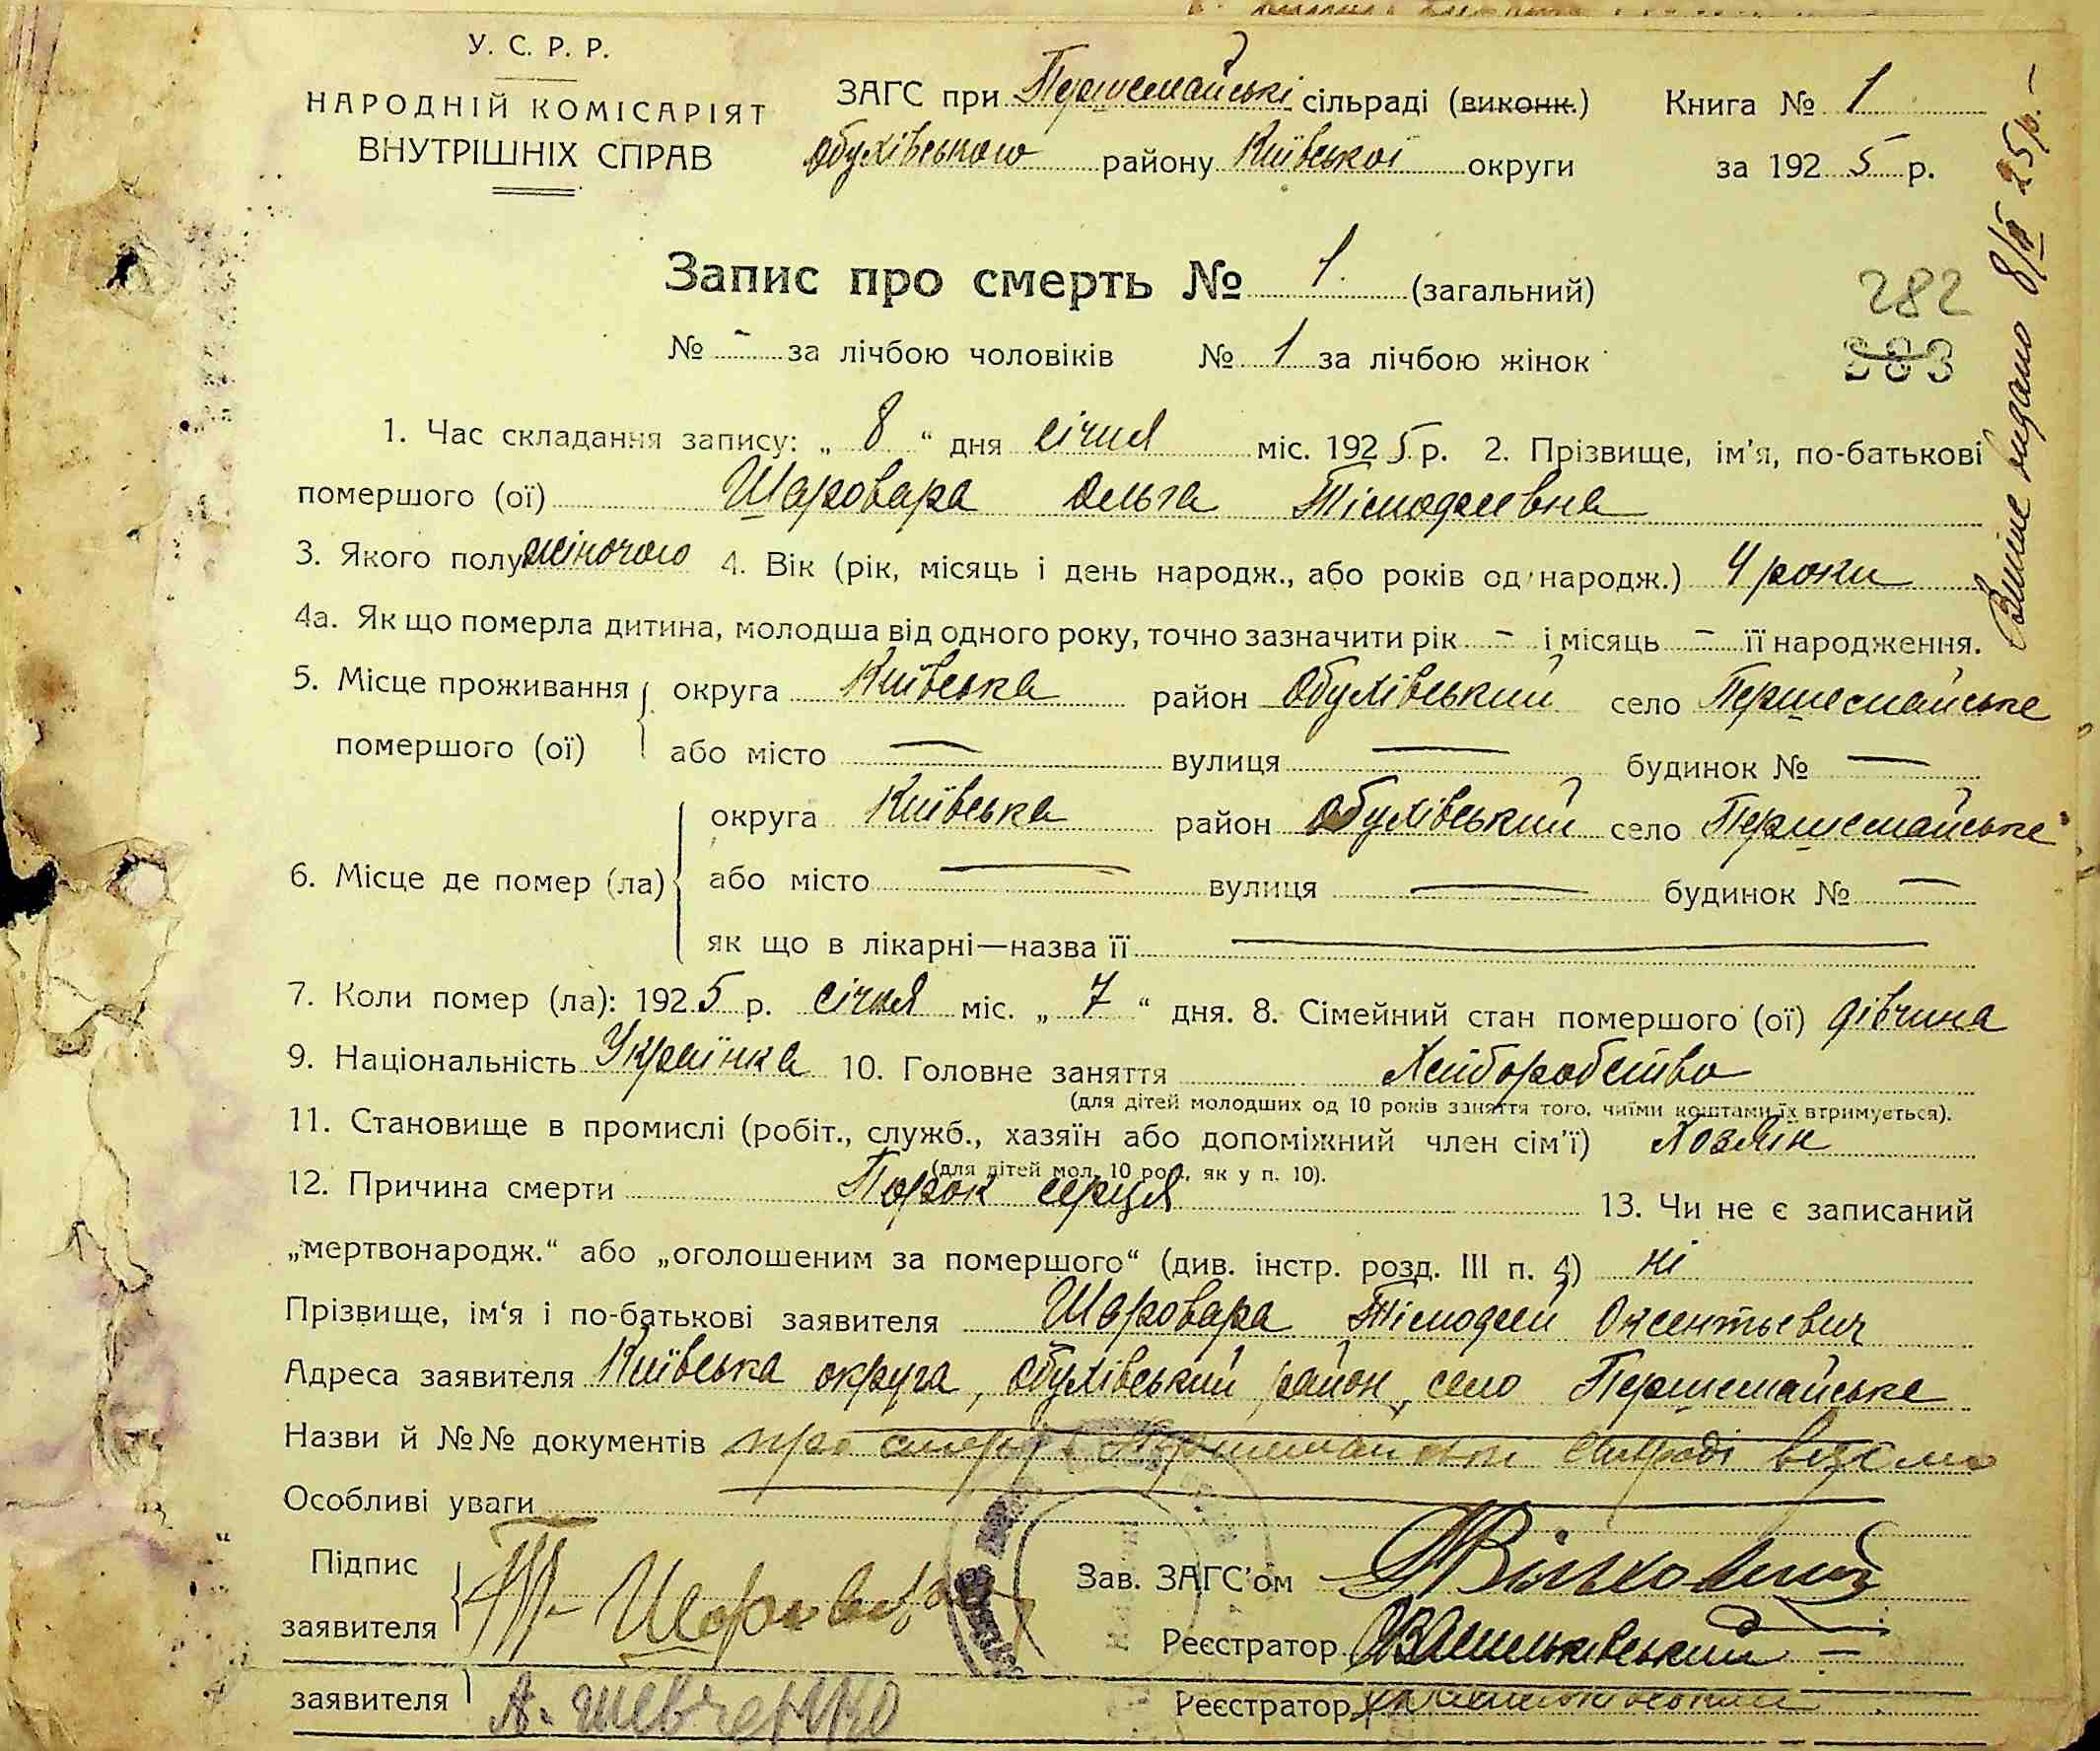 У. С. Р. Р.
НАРОДНІЙ КОМІСАРІЯТ
ВНУТРІШНІХ СПРАВ
ЗАГС при Першемайські сільраді (виконк.)
Обухівського району Київської округи
Книга № 1
за 1925 р.
Запис про смерть № 1. (загальний)
№ - за лічбою чоловіків № 1 за лічбою жінок
282
383
1. Час складання запису: „ 8 “ дня січня міс. 1925 р. 2. Прізвище, ім'я, по-батькові
помершого (ої) Шаровара Ольга Тімофеєвна
3. Якого полу жіночого 4. Вік (рік, місяць і день народж., або років од народж.) 4 роки
4а. Як що померла дитина, молодша від одного року, точно зазначити рік - і місяць - її народження.
5. Місце проживання округа Київська район Обухівський село Першемайське
помершого (ої) або місто — вулиця — будинок № —
округа Київська район Обухівський село Першемайське
6. Місце де помер (ла) або місто — вулиця — будинок № —
як що в лікарні—назва її —
7. Коли помер (ла): 1925 р. січня міс. „ 7 “ дня. 8. Сімейний стан помершого (ої) дівчина
9. Національність Українка 10. Головне заняття Хліборобство
(для дітей молодших од 10 років заняття того, чиїми коштами їх втримується).
11. Становище в промислі (робіт., служб., хазяїн або допоміжний член сім'ї) Хозяїн
(для дітей мол. 10 рок., як у п. 10).
12. Причина смерти Порок серця 13. Чи не є записаний
„мертвонародж.“ або „оголошеним за помершого“ (див. інстр. розд. III п. 4) ні
Прізвище, ім'я і по-батькові заявителя Шаровара Тімофей Оксентьевич
Адреса заявителя Київська округа, Обухівський район, село Першемайське
Назви й №№ документів про смерть
Особливі уваги
Підпис
заявителя Т. Шаровара
Зав. ЗАГС'ом
Реєстратор Васильківський
заявителя А. Шевченко
Реєстратор
видано 8/I 25 р.